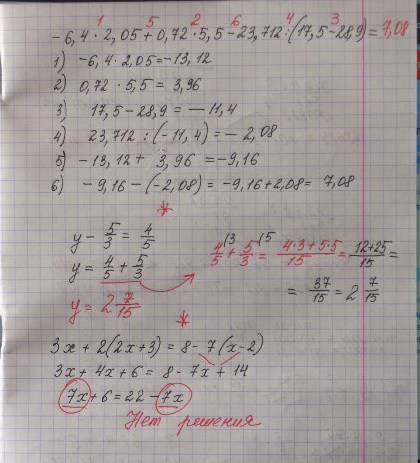 1 5 2 6 4 3
-6,4 · 2,05 + 0,72 · 5,5 - 23,712 : (17,5 - 28,9) = 7,08
1) -6,4 · 2,05 = -13,12
2) 0,72 · 5,5 = 3,96
3) 17,5 - 28,9 = -11,4
4) 23,712 : (-11,4) = -2,08
5) -13,12 + 3,96 = -9,16
6) -9,16 - (-2,08) = -9,16 + 2,08 = 7,08
*
y - 5/3 = 4/5
y = 4/5 + 5/3
y = 2 7/15
4/5 (3 + 5/3 (5 = 4·3+5·5/15 = 12+25/15 =
= 37/15 = 2 7/15
*
3x + 2(2x+3) = 8 - 7(x-2)
3x + 4x + 6 = 8 - 7x + 14
7x + 6 = 22 - 7x
Нет решения